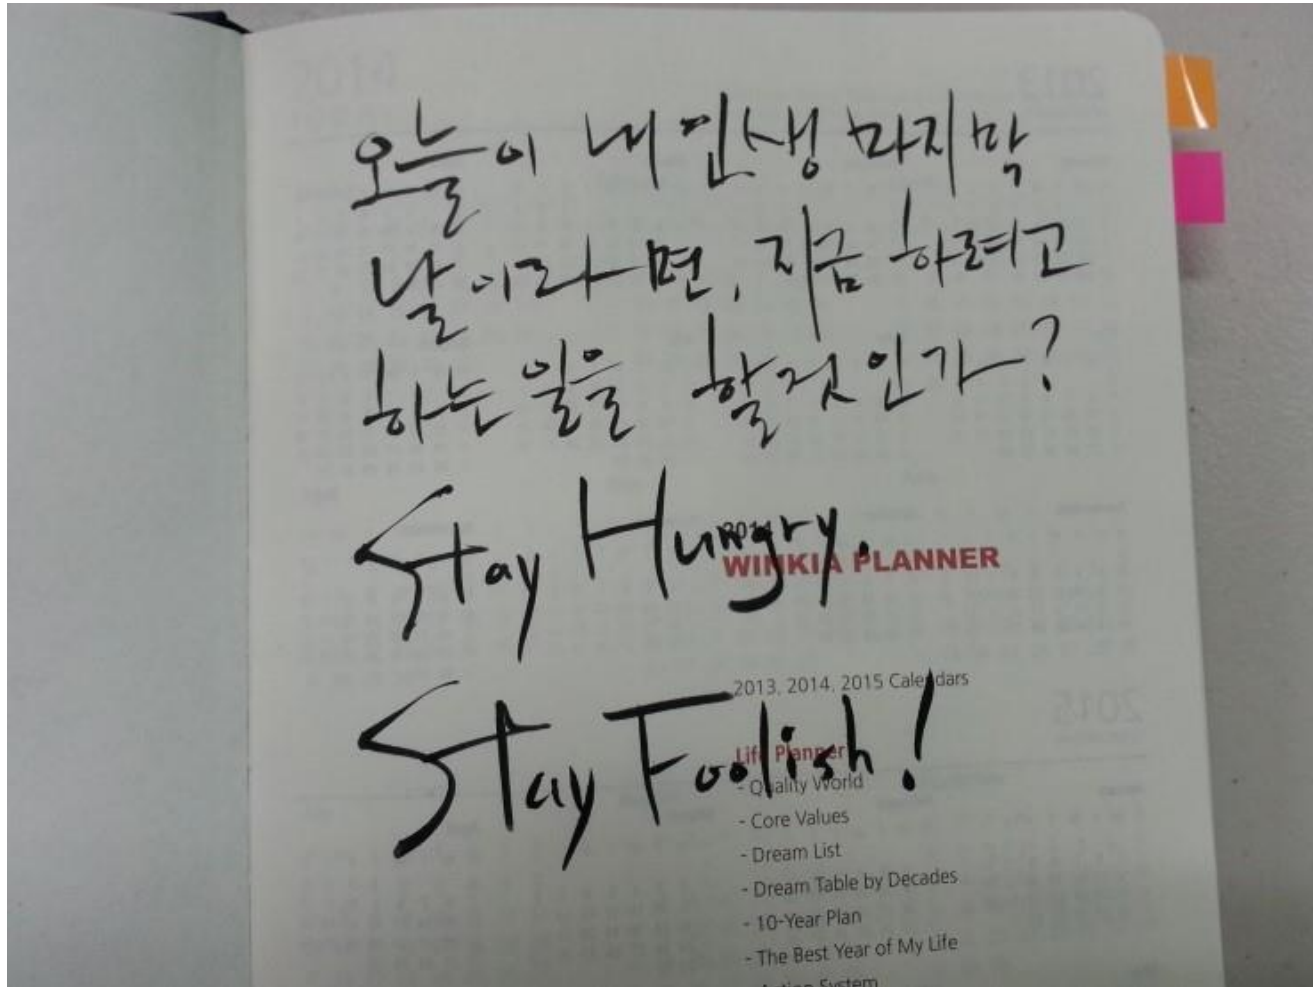 오늘이 내 인생 마지막
날이라면, 지금 하려고
하는 일을 할것인가?
Stay Hungry.
WINKIA PLANNER
2013, 2014, 2015 Calendars
Stay Foolish!
Life Planner
- Quality World
- Core Values
- Dream List
- Dream Table by Decades
- 10-Year Plan
- The Best Year of My Life
- Action System